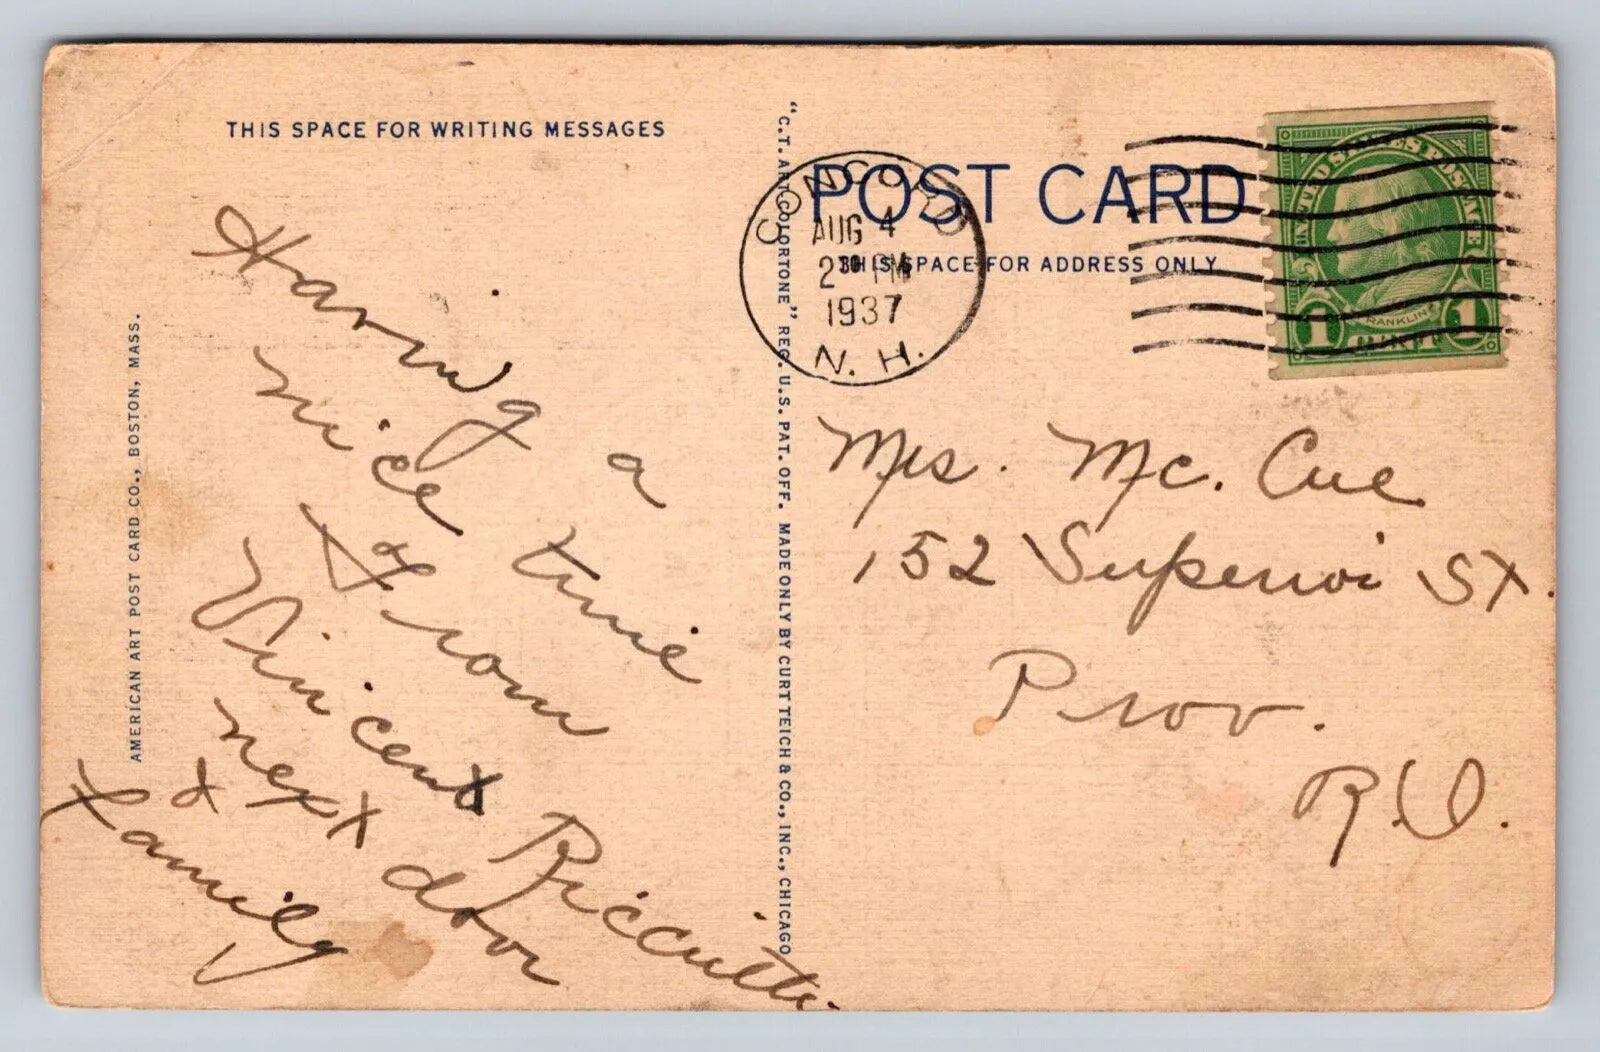 THIS SPACE FOR WRITING MESSAGES
Having a
nice time
From
Vincent Riccuitti
next door
& Family
AMERICAN ART POST CARD CO., BOSTON, MASS.
"C.T. ART COLORTONE" REG. U.S. PAT. OFF. MADE ONLY BY CURT TEICH & CO., INC., CHICAGO
POST CARD
THIS SPACE FOR ADDRESS ONLY
CONCORD
AUG 4
2 30 PM
1937
N. H.
UNITED STATES POSTAGE
FRANKLIN
1 CENT 1
Mrs. Mc. Cue
152 Superior St.
Prov.
R.I.